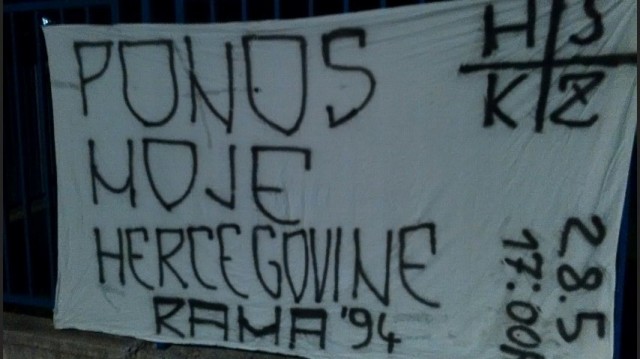 PONOS
MOJE
HERCEGOVINE
RAMA '94
H Š
K Z
28.5
17:00h